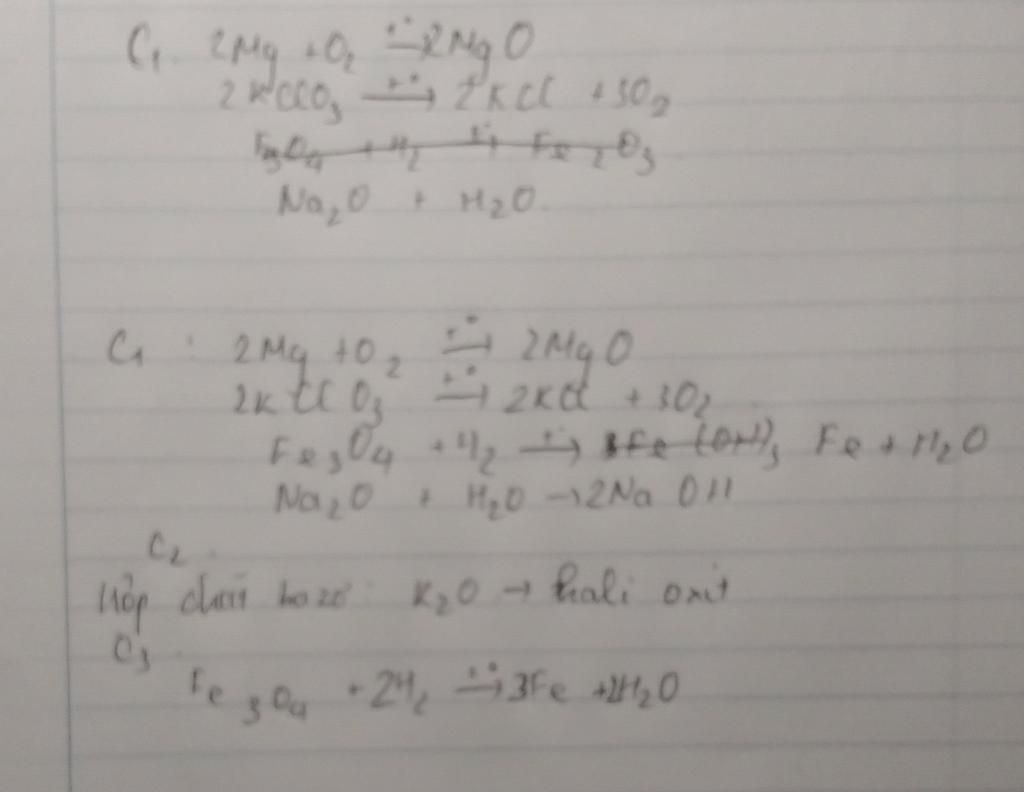 C₁. 2Mg + O₂ t°→ 2MgO
2KClO₃ t°→ 2KCl + 3O₂
Fe₃O₄ + H₂ t°→ Fe₂O₃
Na₂O + H₂O.
C₁ : 2Mg + O₂ t°→ 2MgO
2KClO₃ t°→ 2KCl + 3O₂
Fe₃O₄ + H₂ t°→ 3Fe(OH)₃ Fe + H₂O
Na₂O + H₂O → 2NaOH
C₂.
Hợp chất bazơ: K₂O → kali oxit
C₃
Fe₃O₄ + 2H₂ t°→ 3Fe + 2H₂O